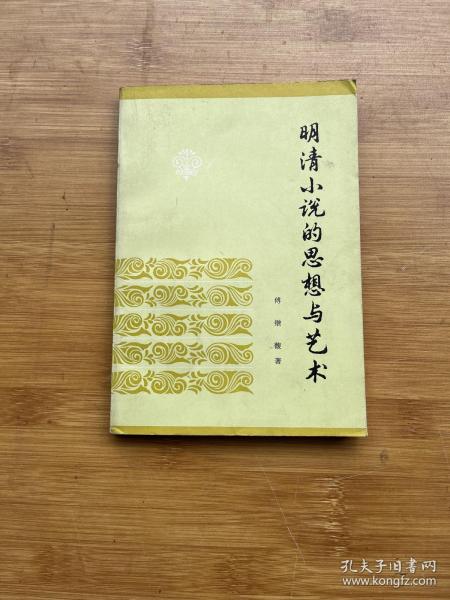 明清小说的思想与艺术
傅继馥著
孔夫子旧书网
www.kongfz.com